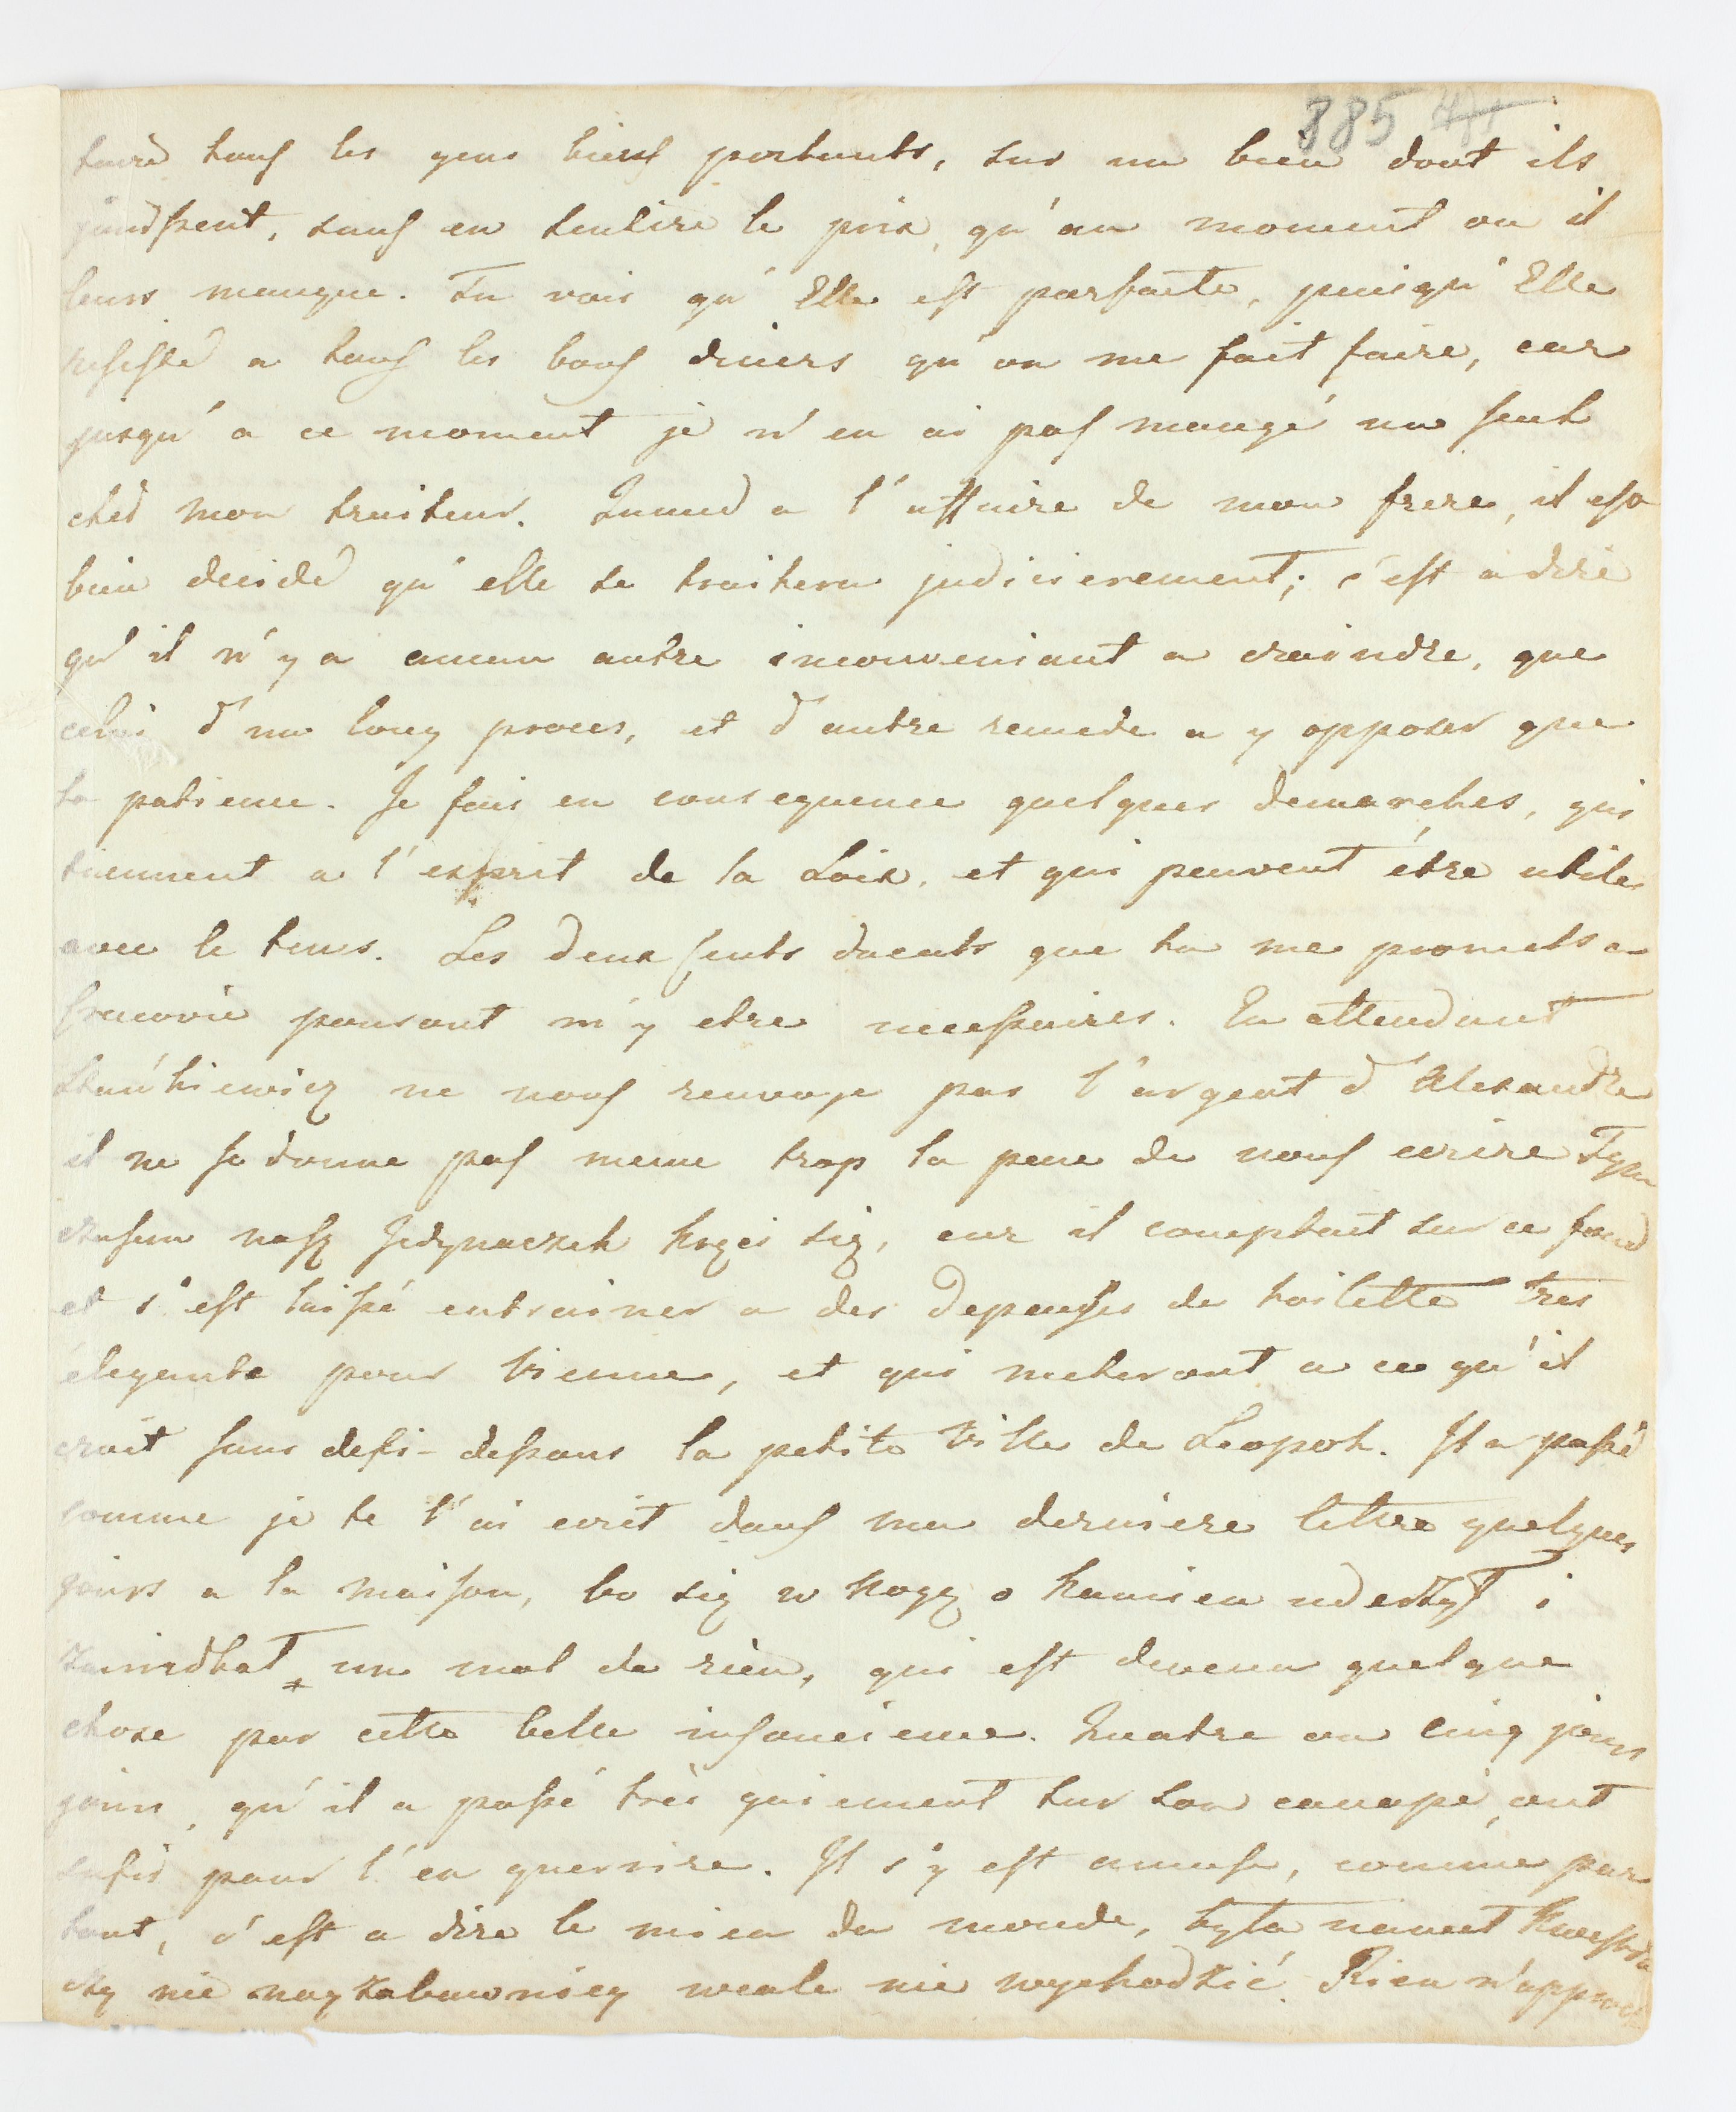 885
taire tous les gens biens portants, sur un bien dont ils
jouissent, sans en sentire le prix, qu'au moment ou il
leurs manque. Tu vois qu'Elle est parfaite, puisqu'Elle
resiste a tous les bons diners qu'on me fait faire, car
jusqu'a ce moment je n'en ai pas mangé un seul
chés mon traiteur. Quand a l'affaire de mon frere, il est
bien decidé qu'elle se traitera judicierement; c'est a dire
qu'il n'y a aucun autre inconveniant a craindre, que
celui d'un long proces, et d'autre remede a y opposer que
la patience. Je fais en consequence quelques demarches, qui
tiennent a l'esprit de la Loix, et qui peuvent être utiles
avec le tems. Les deux cents ducats que tu me promets a
Cracovie pouront m'y etre necessaires. En attendant
Stańkiewicz ne nous renvoye pas l'argent d'Alexandre
il ne se donne pas meme trop la pene de nous ecrire Tym
czasem nasz Jedynaczek kręci się, car il comptait sur ce fond
et s'est laissé entrainer a des Depenses de toilette tres
élegante pour Vienne, et qui metteront a ce qu'il
croit sans desu-dessous la petite Ville de Leopol. Il a passé
comme je te l'ai ecrit dans ma derniere lettre quelques
jours a la maison, bo się w nogę o kamien uderzył i
zaniedbał un mal de rien, qui est devenu quelque
chose par cette belle insoucience. Quatre ou cinq jours
jours, qu'il a passé très gaiement sur son canapé, ont
sufis pour l'en guerrire. Il s'y est amusé, comme par
tout, c'est a dire le mieu du monde, była nawet kwestya
czy nie nayzabawniey wcale nie wychodzić. Rien n'approche